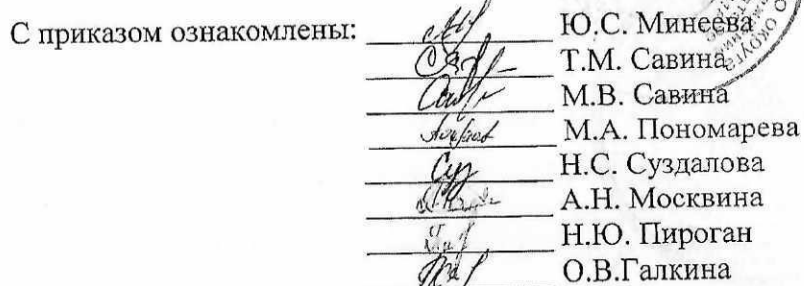 С приказом ознакомлены: Ю.С. Минеева
Т.М. Савина
М.В. Савина
М.А. Пономарева
Н.С. Суздалова
А.Н. Москвина
Н.Ю. Пироган
О.В.Галкина
округа